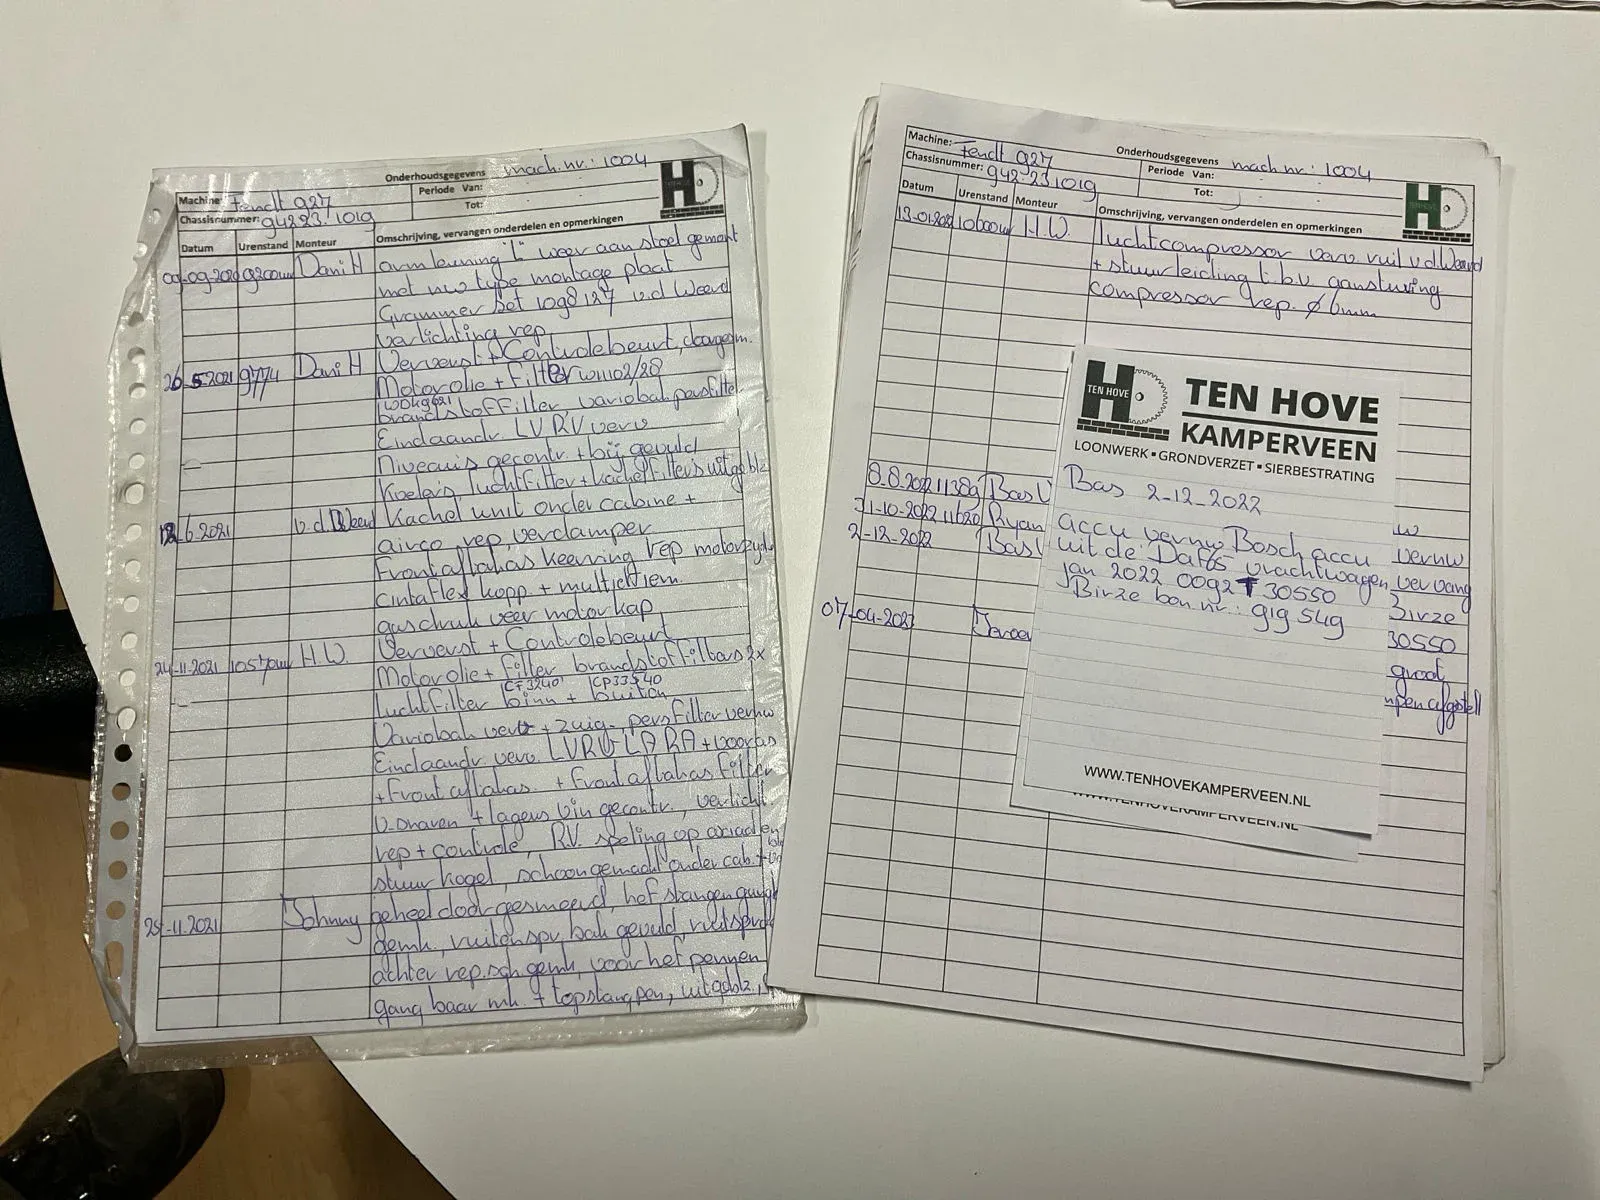 Onderhoudsgegevens mach.nr.: 1004
Machine: Fendt 927
Periode Van:
Chassisnummer: 942.23.1019
Tot:
TEN HOVE
Datum Urenstand Monteur Omschrijving, vervangen onderdelen en opmerkingen
09-09-2020 9200uur Dani H armleuning "L" weer aan stoel gemont
met nw type montage plaat
Grammer Set 1098127 v.d Weerd
verlichting rep.
26-5-2021 9774 Dani H Ververst + Controlebeurt, doorgesm.
Motorolie + Filter W11102/28
brandstoffilter, variobak persfilter
Eindaandr. LV RV verv
Niveau's gecontr. + bij gevuld
Koelers, luchtfilter + kachelfilters uitgeblz
6-2021 v.d. Weerd Kachel unit onder cabine +
airco rep, verdamper
Frontaftakas keerring rep motorzyde
kopp + multi
veer motorkap
24-11-2021 10570uur H.W. Ververst + Controlebeurt
Motorolie + Filter brandstoffilters 2x
CF3240 CP33540
luchtfilter binn + buiten
Variobak + zuig- persfilter vernw
Eindaandr verv. LV RV LA RA + vooras
+ Frontaftakas. + Frontaftakas filter
+ lagers gecontr., verlicht.
rep + controle, R.V. speling op
stuur kogel, schoongemaakt onder cab. +
25-11-2021 Johnny geheel doorgesmeerd, hefstangen gang
gemk, ruitenspr. bak gevuld,
achter rep. sch gemk, voor hef pennen
gang baar mk. + topstang pen,
Onderhoudsgegevens mach.nr.: 1004
Machine: Fendt 927
Periode Van:
Chassisnummer: 942.23.1019
Tot:
TEN HOVE
Datum Urenstand Monteur Omschrijving, vervangen onderdelen en opmerkingen
H.W. luchtcompressor verv ruil v.d. Weerd
+ stuurleiding t.b.v aansturing
compressor rep. Ø 6mm
8-8-2022 11389 Bas
31-10-2022 11620 Ryan vernw
2-12-2022 Bas vervang
Birze
07-04-2023 Jeroen 30550
groot
TEN HOVE
TEN HOVE
KAMPERVEEN
LOONWERK • GRONDVERZET • SIERBESTRATING
Bas 2-12-2022
accu vernw Bosch accu
uit de Daf 65 vrachtwagen
jan 2022 0092T30550
Birze bon.nr.: 919549
WWW.TENHOVEKAMPERVEEN.NL
WWW.TENHOVEKAMPERVEEN.NL